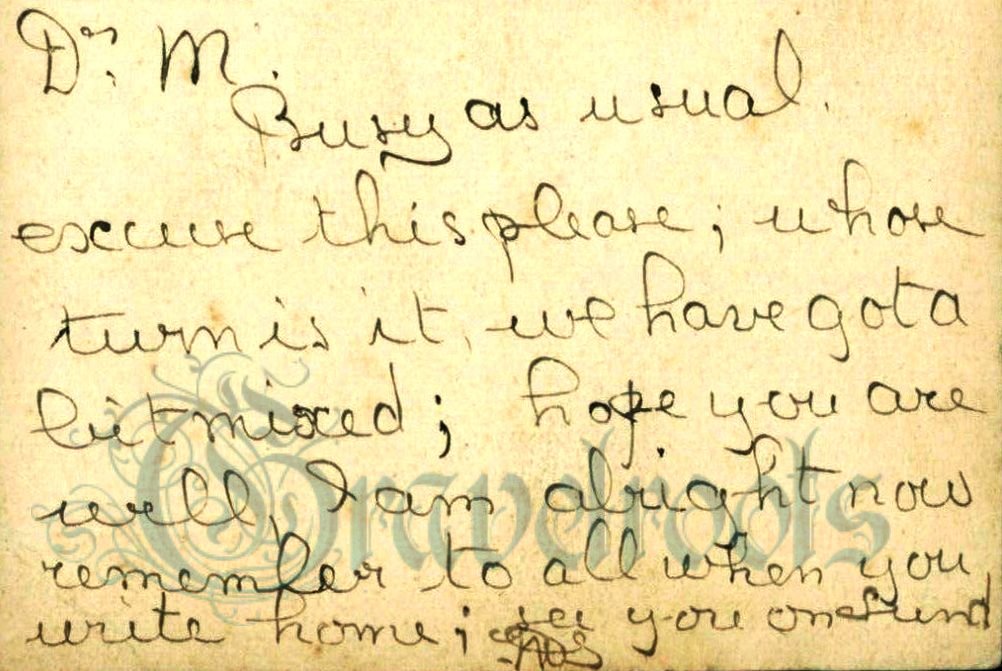 Dr. M.
Busy as usual.
excuse this please; whose
turn is it, we have got a
bit mixed; hope you are
well, I am alright now
remember to all when you
write home; see you on Sund
Graveroots